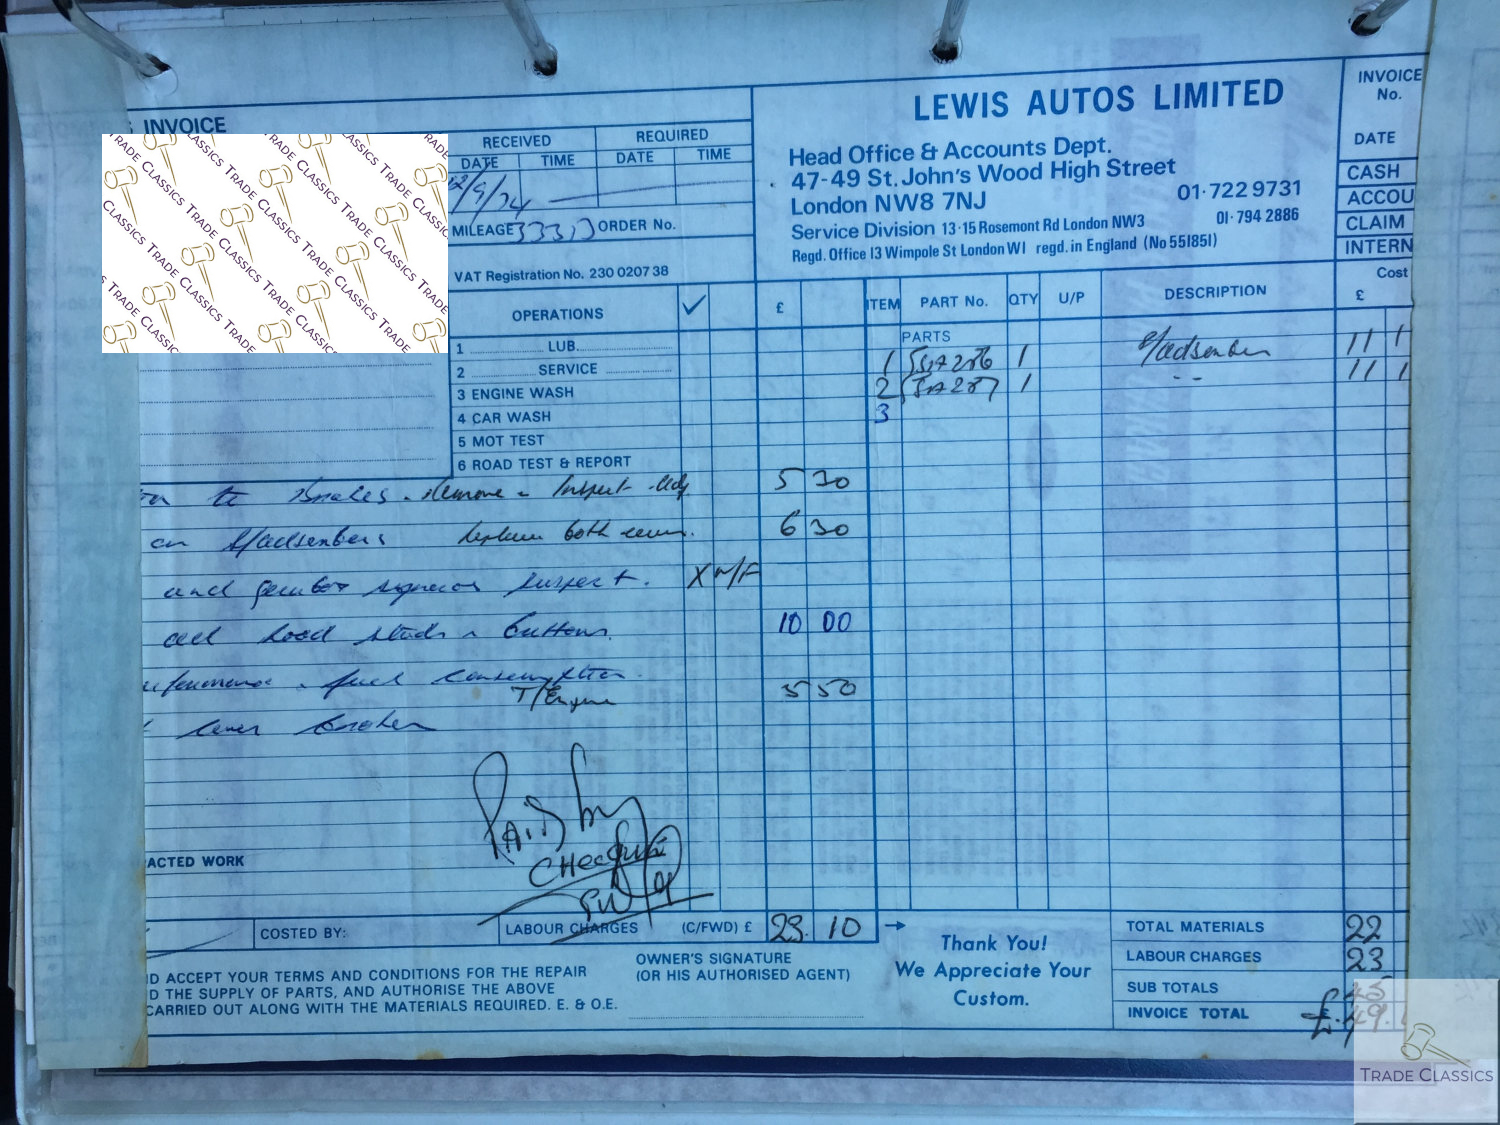 INVOICE
RECEIVED
REQUIRED
DATE TIME DATE TIME
12/9/74
MILEAGE ORDER No.
VAT Registration No. 230 0207 38
LEWIS AUTOS LIMITED
Head Office & Accounts Dept.
47-49 St. John's Wood High Street
London NW8 7NJ 01·722 9731
Service Division 13·15 Rosemont Rd London NW3 01·794 2886
Regd. Office 13 Wimpole St London W1 regd. in England (No 551851)
INVOICE
No.
DATE
CASH
ACCOU
CLAIM
INTERN
Cost
£
OPERATIONS £
ITEM PART No. QTY U/P DESCRIPTION
PARTS
1 LUB.
2 SERVICE
3 ENGINE WASH
4 CAR WASH
5 MOT TEST
6 ROAD TEST & REPORT
1 1 11 1
2 1 11 1
3
to Brakes. Remove - Inspect 5 30
on both 6 30
and inspect. X
all hood studs buttons. 10 00
fuel consumption.
T/Engine 5 50
lever broken
PAID by
CHEQUE
ACTED WORK
COSTED BY:
LABOUR CHARGES (C/FWD) £ 23. 10
D ACCEPT YOUR TERMS AND CONDITIONS FOR THE REPAIR
D THE SUPPLY OF PARTS, AND AUTHORISE THE ABOVE
CARRIED OUT ALONG WITH THE MATERIALS REQUIRED. E. & O.E.
OWNER'S SIGNATURE
(OR HIS AUTHORISED AGENT)
Thank You!
We Appreciate Your
Custom.
TOTAL MATERIALS 22
LABOUR CHARGES 23
SUB TOTALS 45
INVOICE TOTAL £49.
TRADE CLASSICS